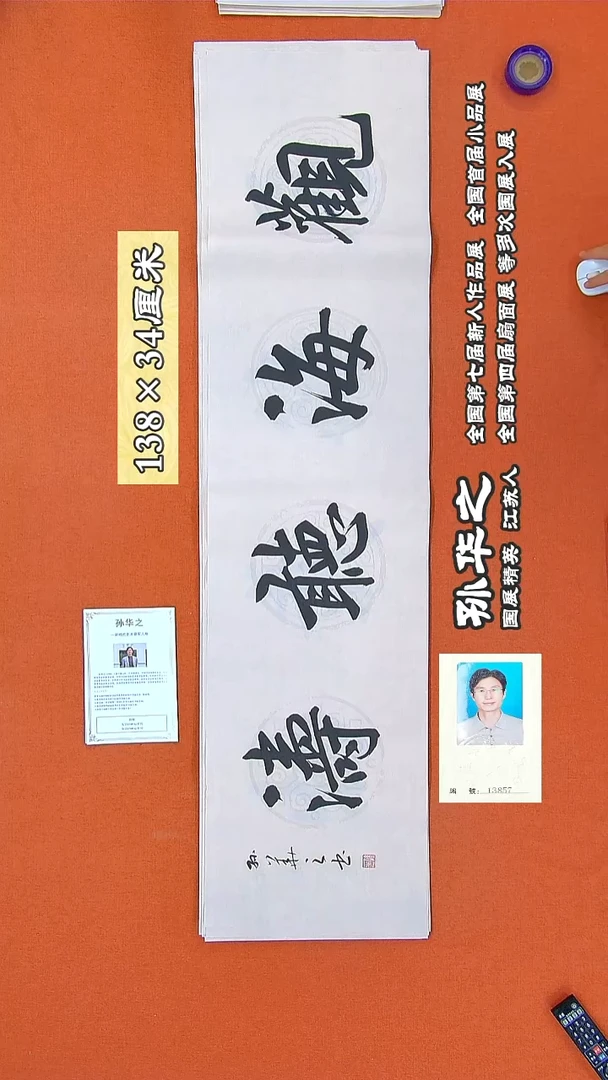 138×34厘米
觀海聽濤
孙華之书
孙华之
国展精英 江苏人
全国第七届新人作品展 全国首届小品展
全国第四届扇面展 等多次国展入展
孙华之
13857